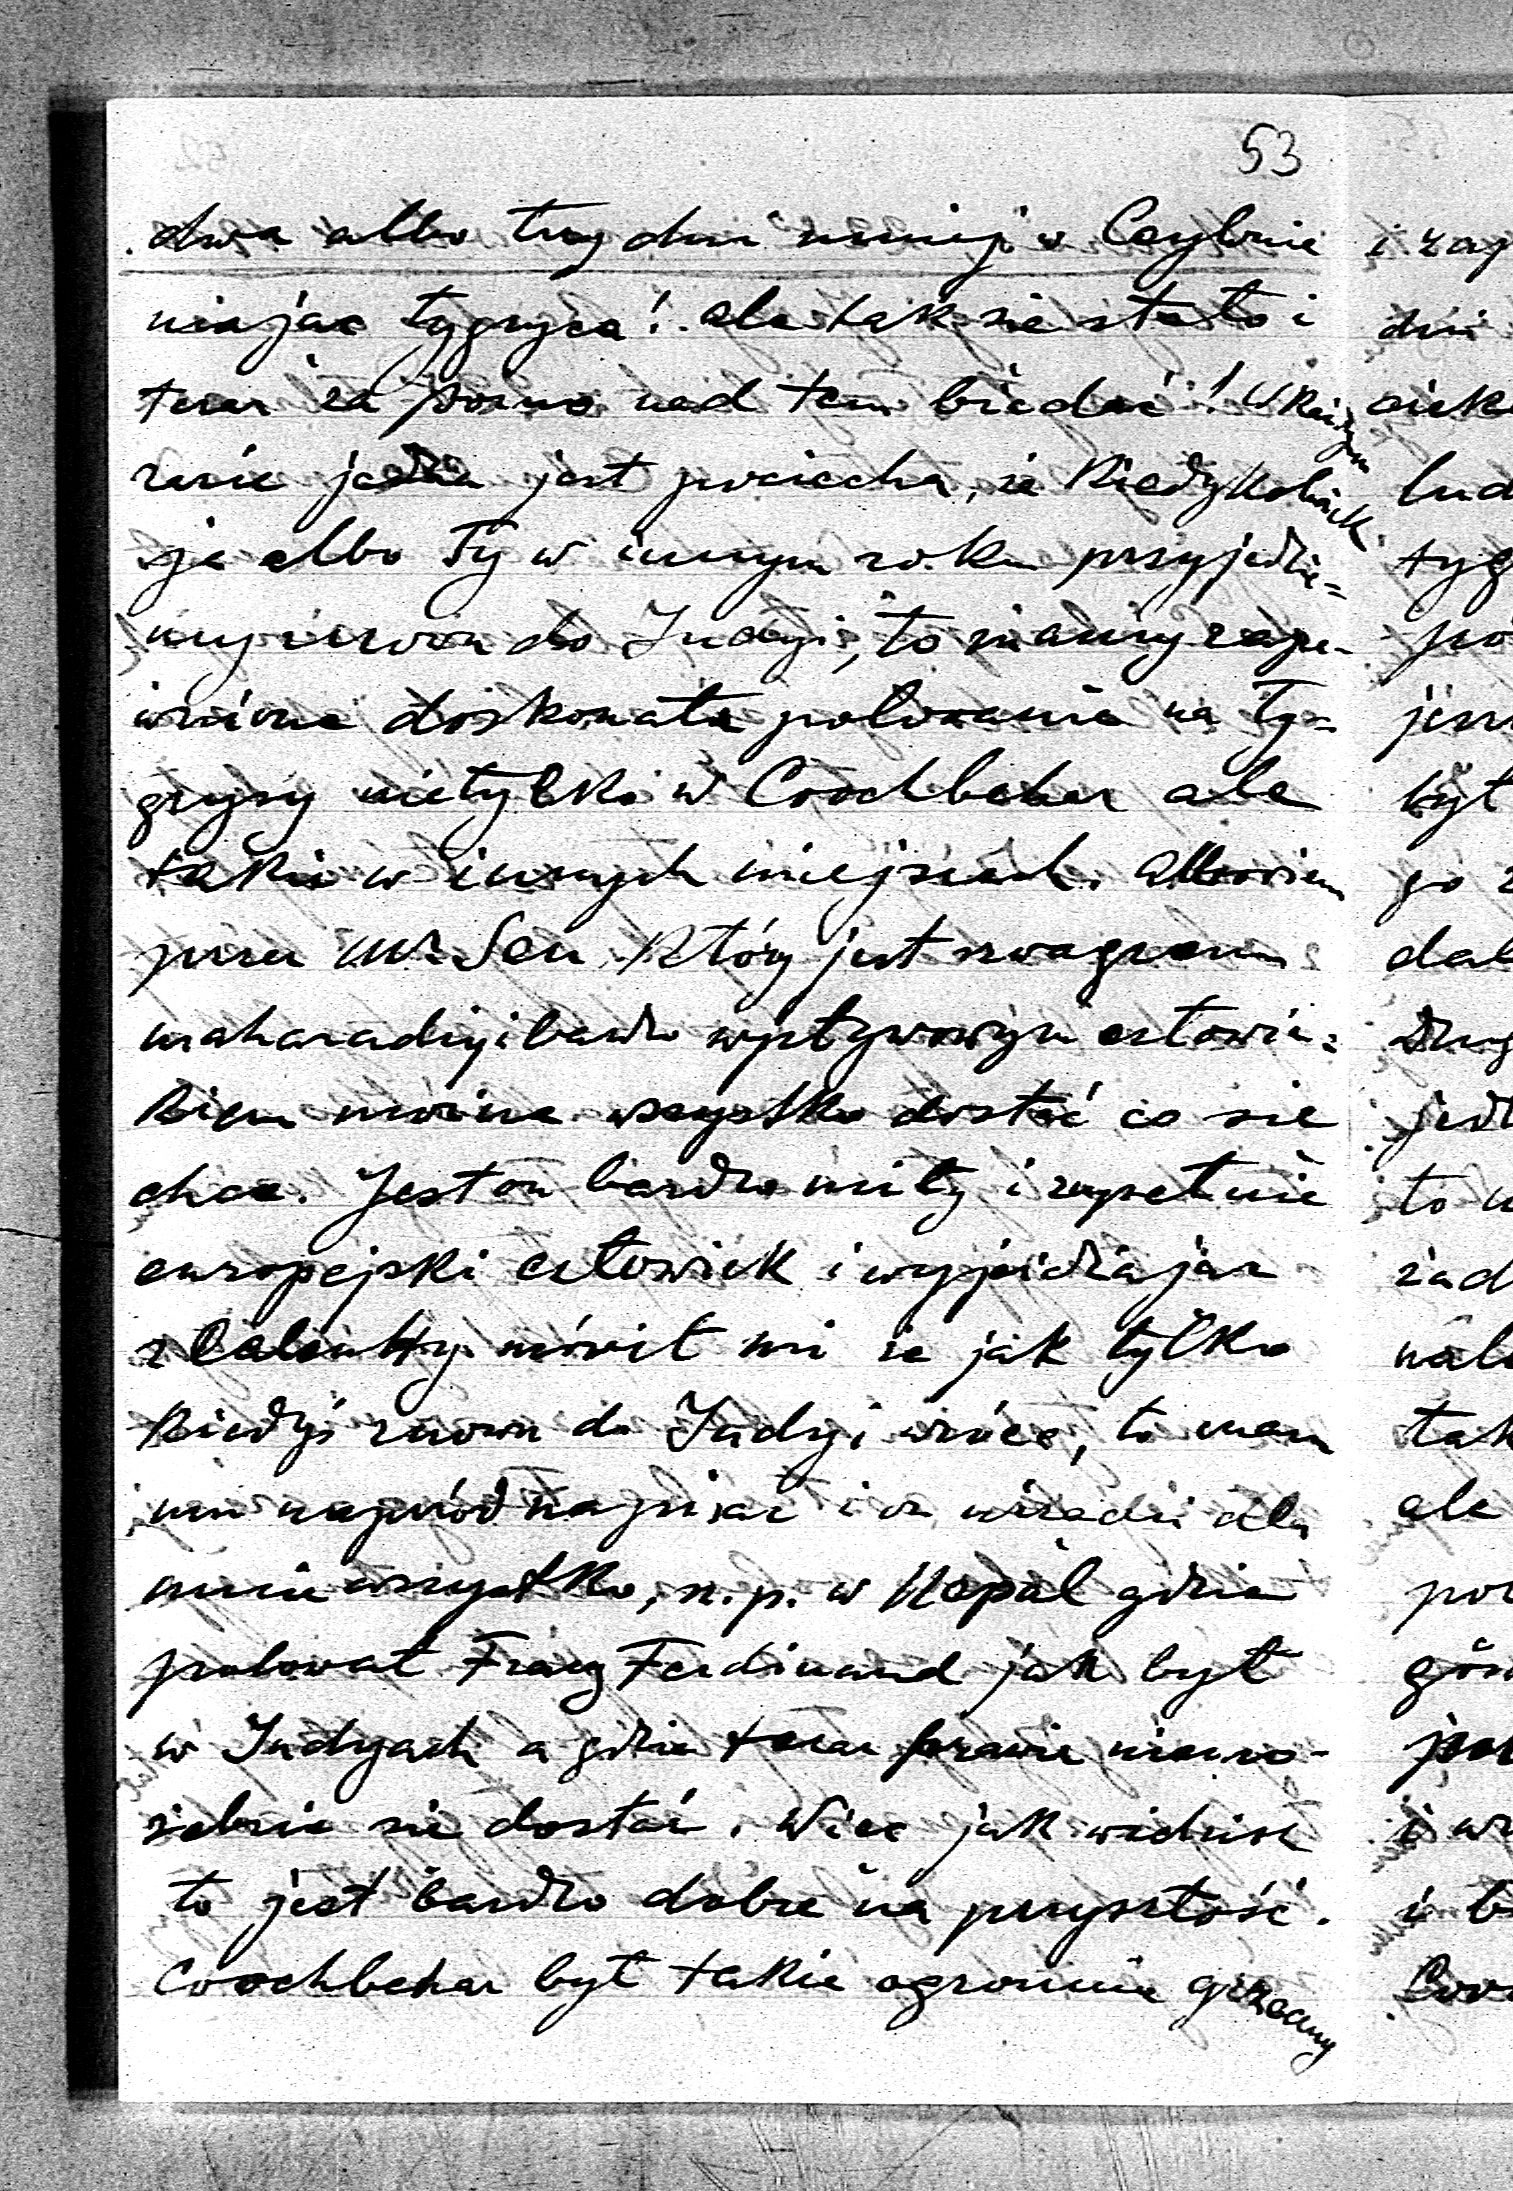 53
dwa albo trzy dni mniej w Ceylonie
mając tygrysa! ale tak się stało i
teraz za późno nad tem biedać! W każdym
razie jedna jest pociecha, że kiedykolwiek
ja albo Ty w innym roku przyjedzie=
my znowu do Indyi, to mamy zape-
wnione doskonałe polowanie na ty=
grysy nietylko w Coochbehar ale
także w innych miejscach. Albowiem
przez Mr Sen który jest szwagrem
maharadży i bardzo wpływowym człowie=
kiem można wszystko dostać co się
chce. Jest on bardzo miły i zupełnie
europejski człowiek i wyjeżdżając
z Calcutty mówił mi że jak tylko
kiedyś znowu do Indyi wrócę, to mam
mu naprzód napisać i on urządzi dla
mnie wszystko, n.p. w Nepal gdzie
polował Franz Ferdinand jak był
w Indyach a gdzie teraz prawie niemo-
żebnie się dostać. Więc jak widzisz
to jest bardzo dobre na przyszłość.
Coochbehar był także ogromnie grzeczny
i
dni
lud
tyg
dal
to
tak
ale
i
i b